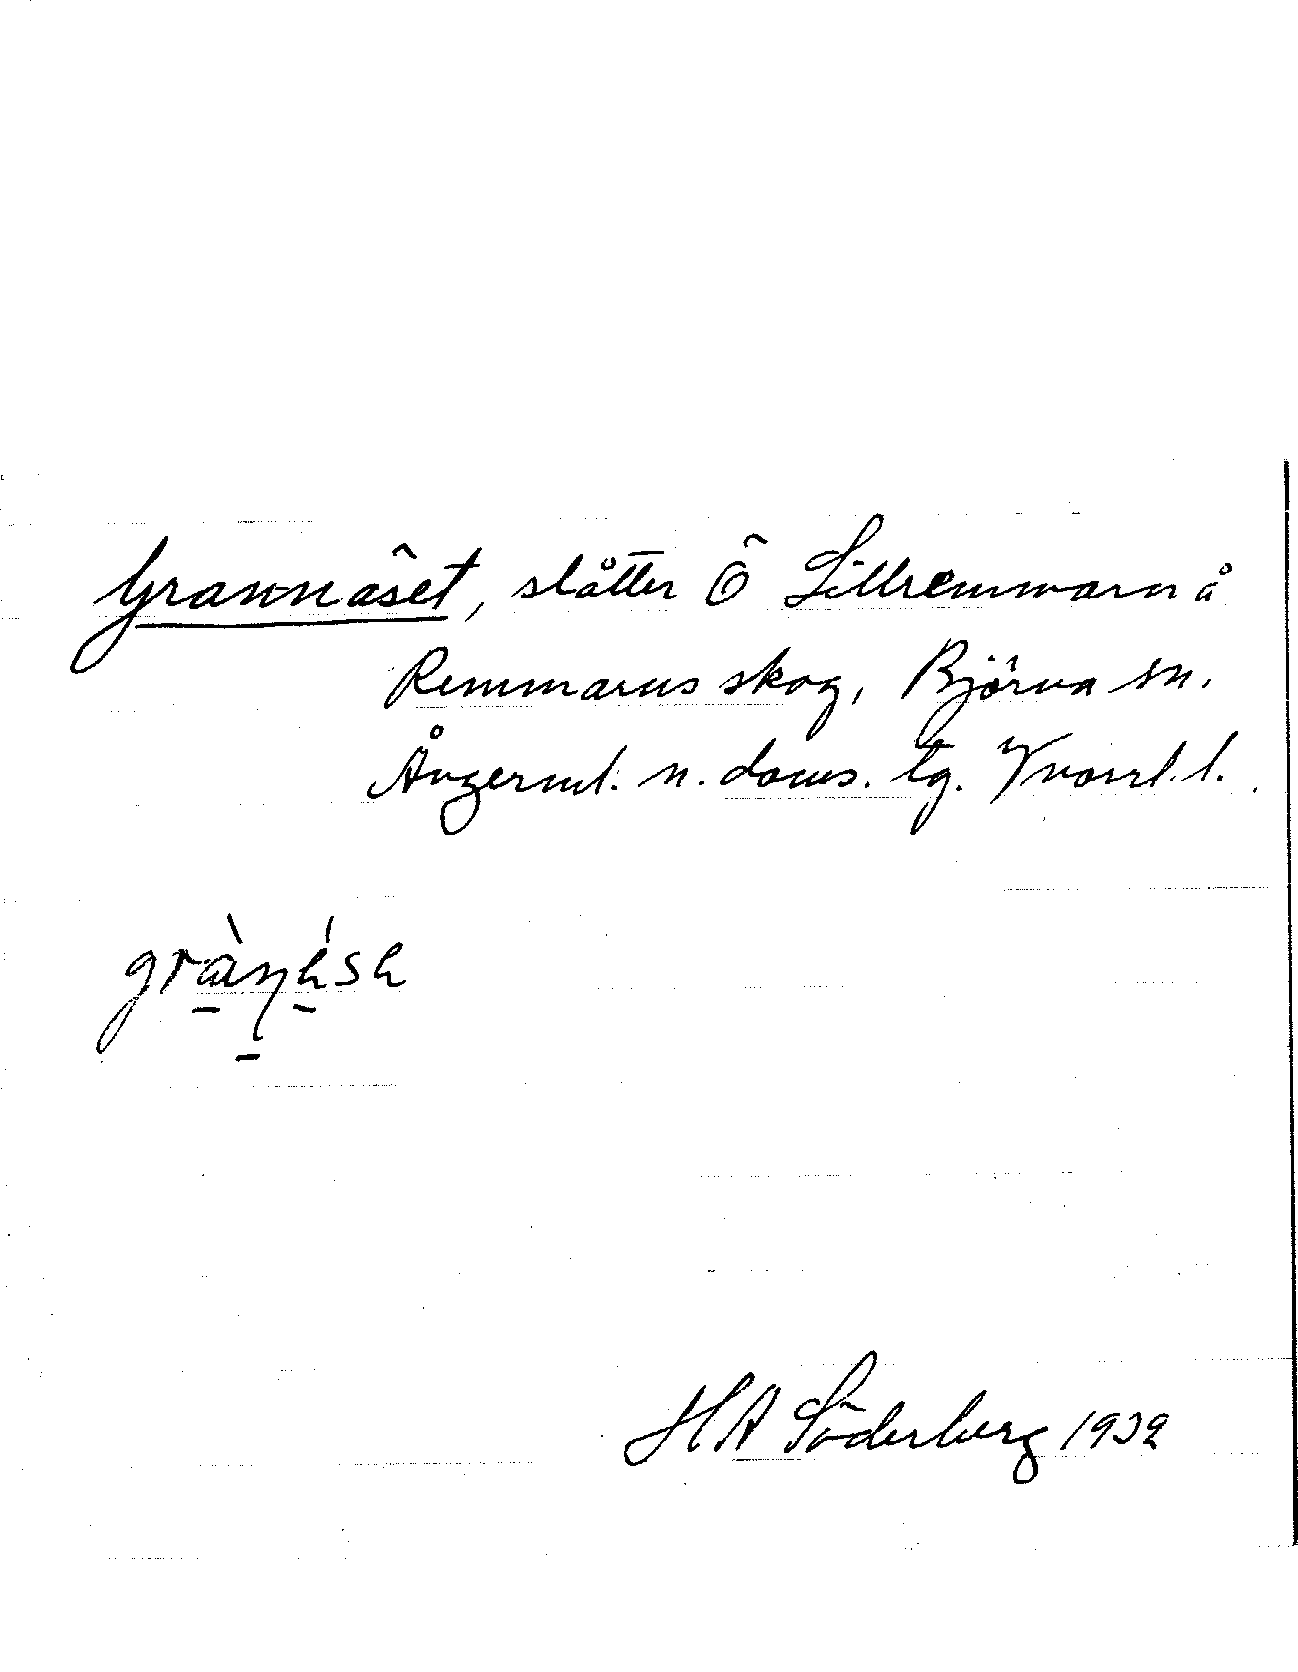 Grannäset, slåtter Ö Lillremmarn å
Remmarns skog, Björna sn.
Ångerml. n. doms. tg. Vnorrl. l.
HA Söderberg 1932